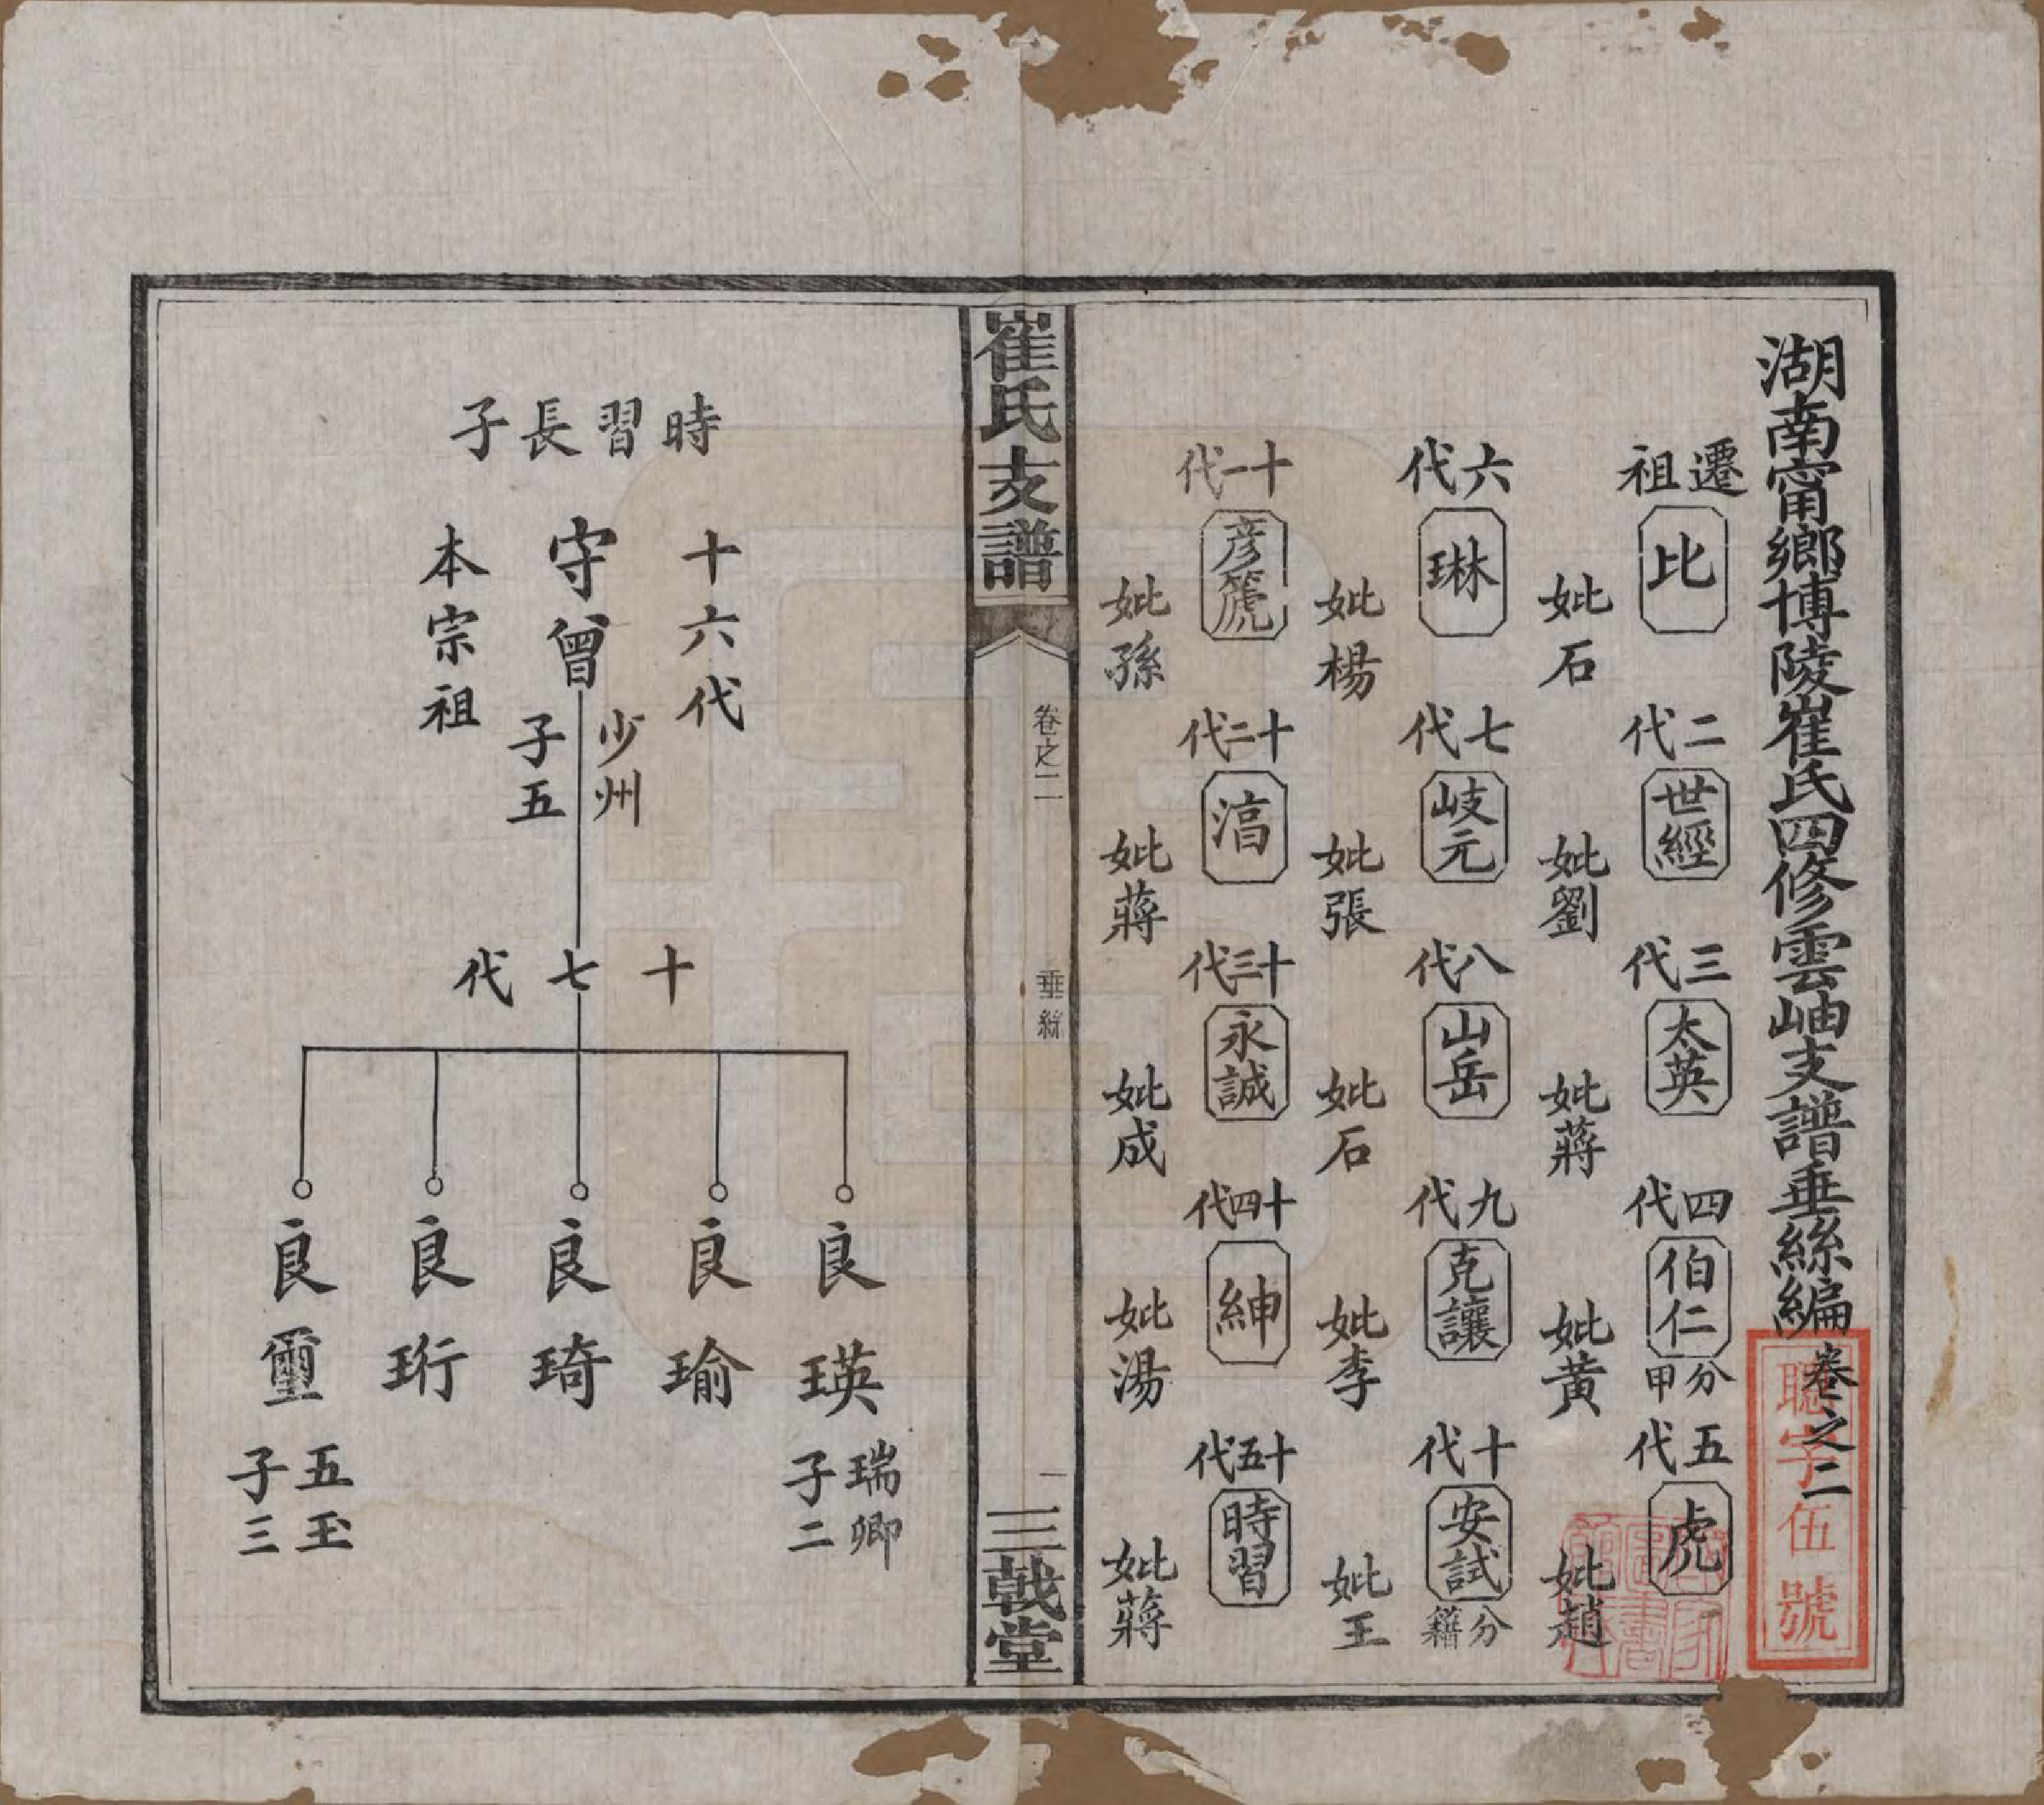 湖南甯鄉博陵崔氏四修雲岫支譜垂絲編 卷之二
聰字伍號
遷祖 比 妣石
二代 世經 妣劉
三代 太英 妣蔣
四代 伯仁 分甲 妣黃
五代 虎 妣趙
六代 琳 妣楊
七代 岐元 妣張
八代 山岳 妣石
九代 克讓 妣李
十代 安試 分籍 妣王
十一代 彦篪 妣孫
十二代 湻 妣蔣
十三代 永誠 妣成
十四代 紳 妣湯
十五代 時習 妣蔣
崔氏支譜
卷之二
垂絲
一
三戟堂
時習長子
十六代
守曾
少州
子五
本宗祖
十七代
良瑛
瑞卿
子二
良瑜
良琦
良珩
良璽
五玉
子三